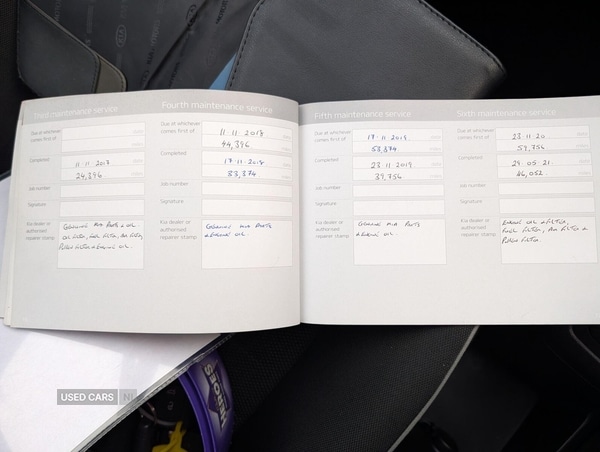 Third maintenance service
Due at whichever
comes first of:
Completed
11·11·2017
24,396
Job number
Signature
Kia dealer or
authorised
repairer stamp
Genuine Kia Parts + oil
oil filter, fuel filter, air filter,
Pollen filter + Engine oil.
Fourth maintenance service
Due at whichever
comes first of:
11·11·2018
44,396
Completed
17·11·2018
33,874
Job number
Signature
Kia dealer or
authorised
repairer stamp
Genuine Kia Parts
+ Engine oil.
Fifth maintenance service
Due at whichever
comes first of:
17·11·2019
53,874
Completed
23·11·2019
39,756
Job number
Signature
Kia dealer or
authorised
repairer stamp
Genuine Kia Parts
+ Engine oil.
Sixth maintenance service
Due at whichever
comes first of:
23·11·20
59,756
Completed
29·05·21
46,052
Job number
Signature
Kia dealer or
authorised
repairer stamp
Engine oil + filter,
Fuel filter, Air filter +
Pollen filter.
USED CARS NI